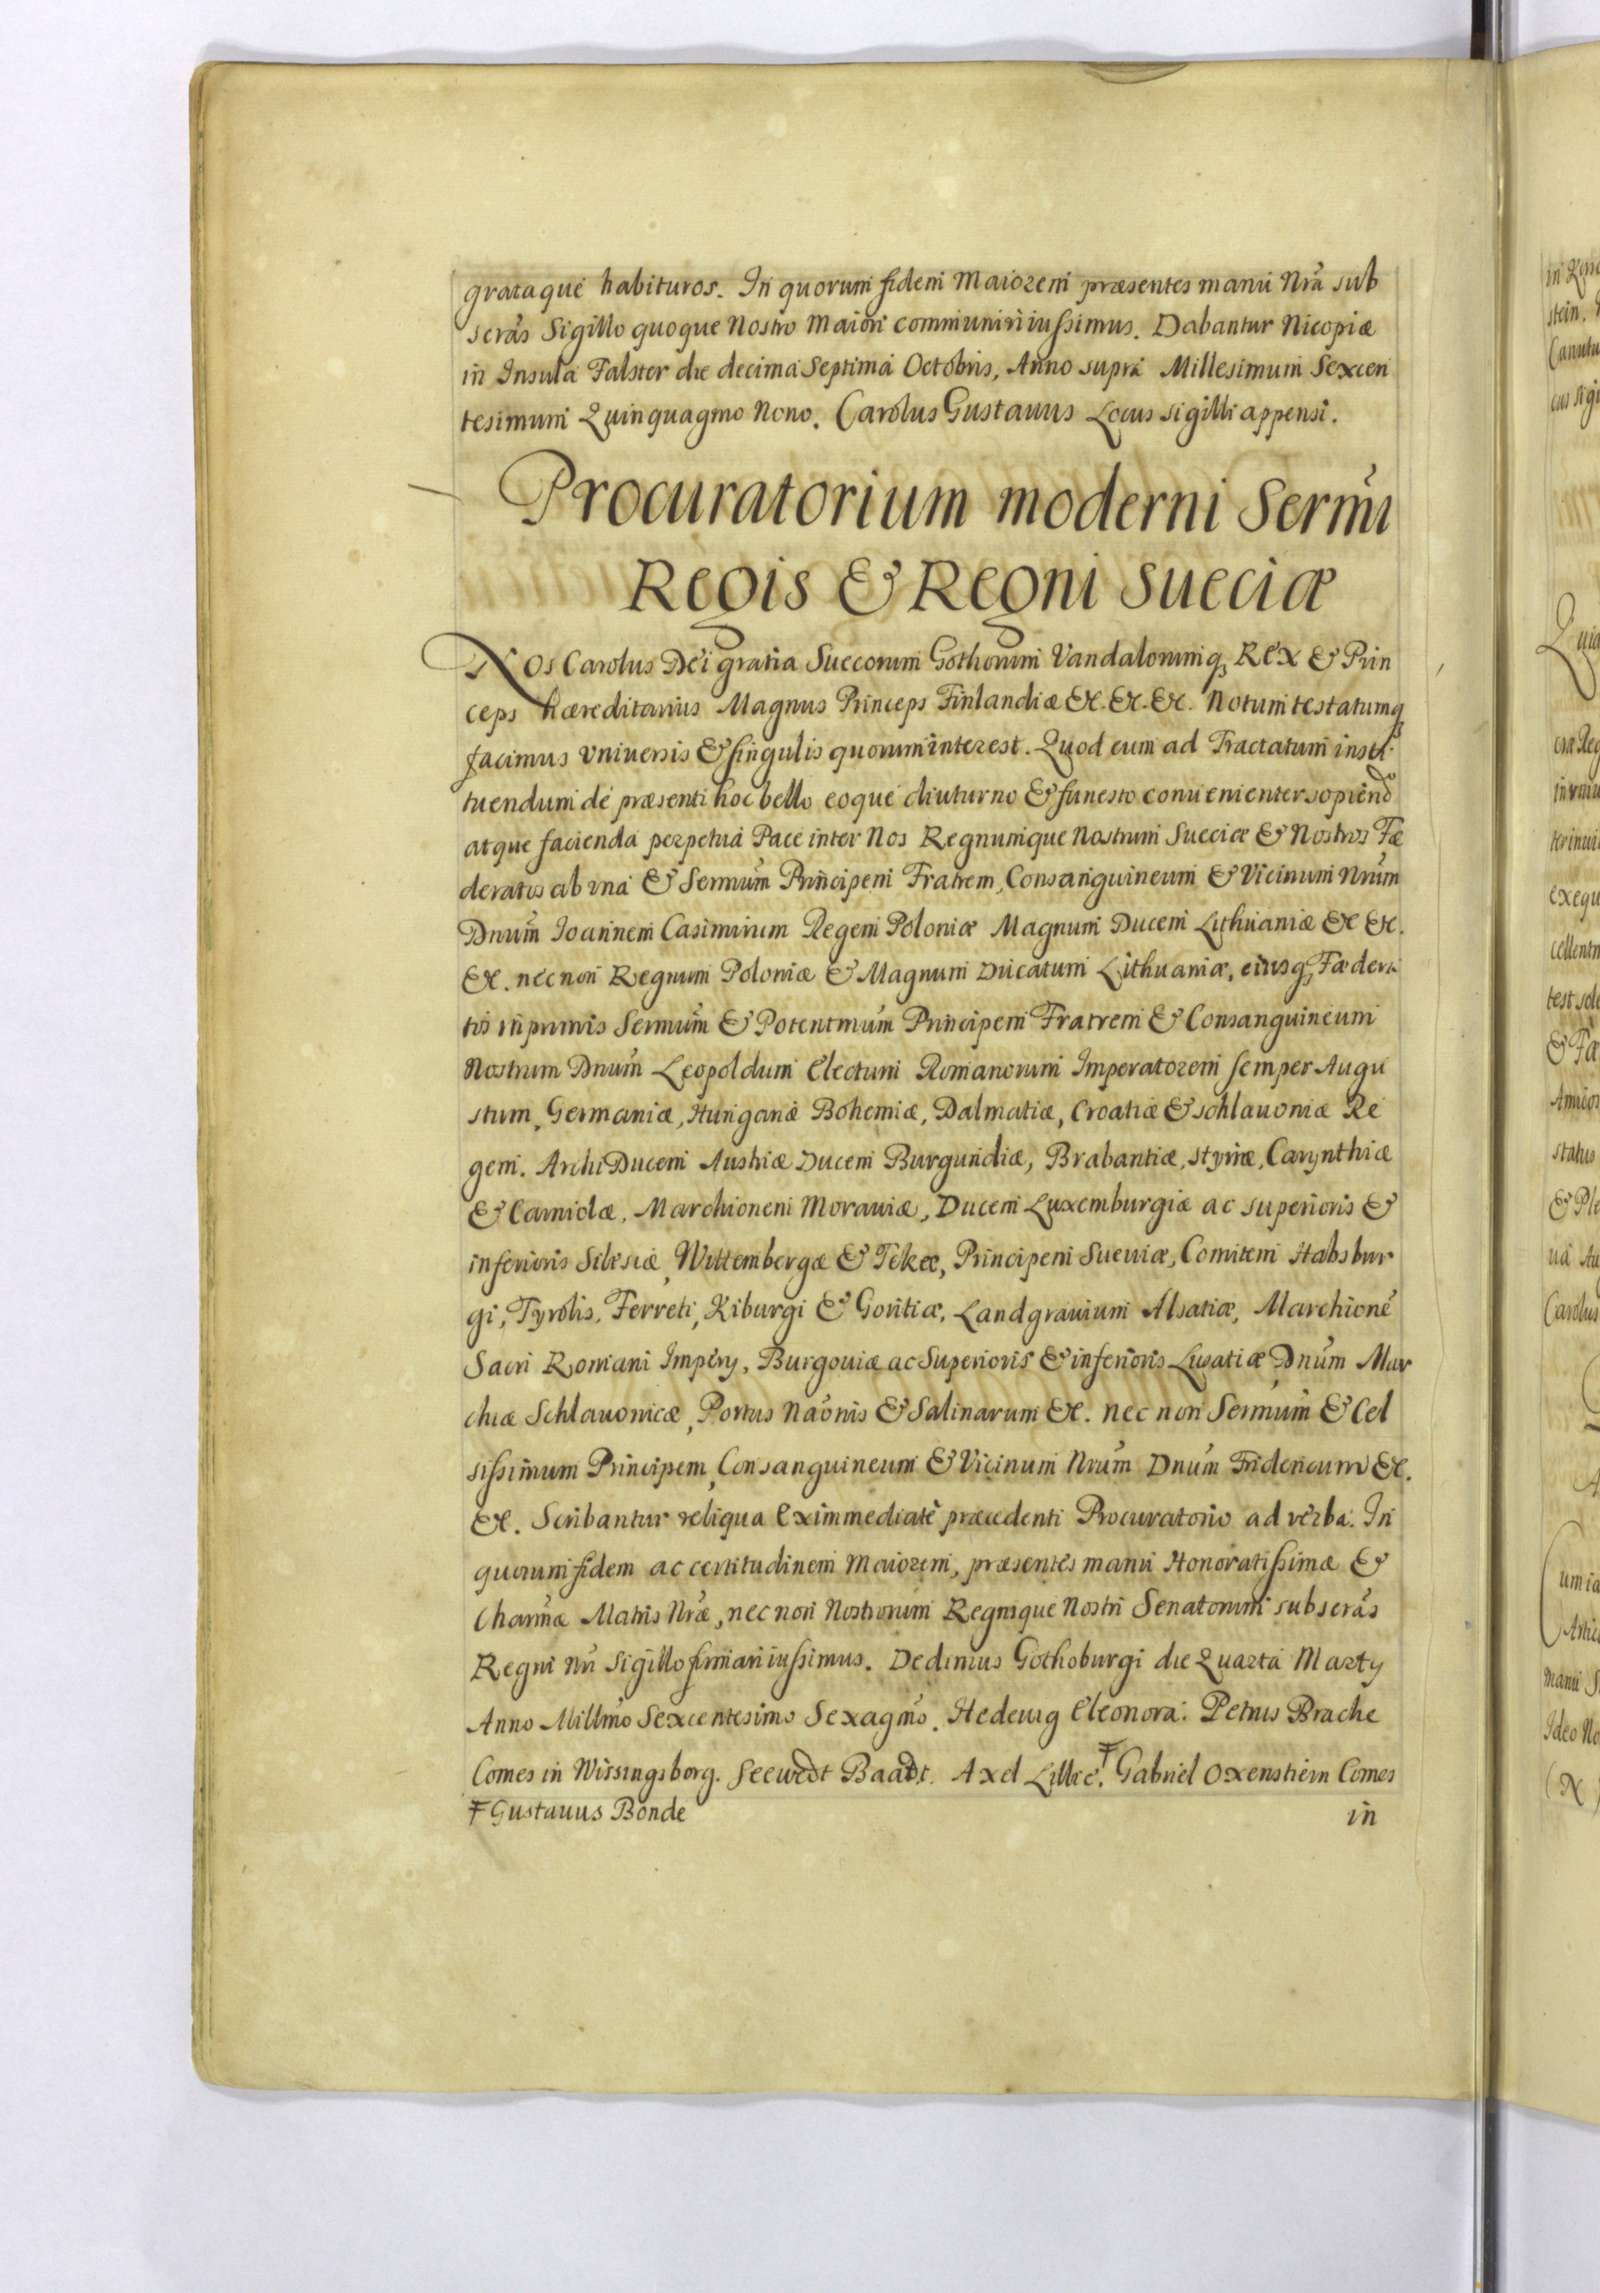 grataque habituros. In quorum fidem Maiorem præsentes manu Nrã sub
scrãs Sigillo quoque Nostro Maiori communiri iussimus. Dabantur Nicopiæ
in Insula Falster die decima Septima Octobris, Anno supra Millesimum Sexcen
tesimum Quinquagmo Nono. Carolus Gustavus Locus sigilli appensi.
Procuratorium moderni Sermi
Regis & Regni Sueciæ
Nos Carolus Dei gratia Suecorum Gothorum Vandalorumq, Rex & Prin
ceps hæreditarius Magnus Princeps Finlandiæ &c. &c. &c. Notum testatumq
facimus vniversis & singulis quorum interest. Quod cum ad Tractatum insti
tuendum de præsenti hoc bello eoque diuturno & funesto convenienter sopiendo
atque facienda perpetua Pace inter Nos Regnumque Nostrum Sueciæ & Nostros Fæ
deratos ab vna & Sermum Principem Fratrem, Consanguineum & Vicinum Nrum
Dnum Joannem Casimirum Regem Poloniæ Magnum Ducem Lithuaniæ &c &c.
&c. nec non Regnum Poloniæ & Magnum Ducatum Lithuaniæ, eiusq, Fædera
tis inprimis Sermum & Potentmum Principem Fratrem & Consanguineum
Nostrum Dnum Leopoldum Electum Romanorum Imperatorem semper Augu
stum, Germaniæ, Hungariæ Bohemiæ, Dalmatiæ, Croatiæ & Schlavoniæ Re
gem. ArchiDucem Austriæ Ducem Burgundiæ, Brabantiæ, Styriæ, Carynthiæ
& Carniolæ, Marchionem Moraviæ, Ducem Luxemburgiæ ac superioris &
inferioris Silesiæ, Wittembergæ & Tekec, Principem Sueviæ, Comitem Habsbur
gi, Tyrolis, Ferreti, Kiburgi & Goritiæ, Landgravium Alsatiæ, Marchionē
Sacri Romani Impery, Burgoviæ ac Superioris & inferioris Lusatiæ, Dnum Mar
chiæ Schlavonicæ, Portus Naonis & Salinarum &c. nec non Sermum & Cel
sissimum Principem, Consanguineum & Vicinum Nrum Dnum Fridericum &c.
&c. Scribantur reliqua Ex immediate præcedenti Procuratorio ad verba. In
quorum fidem ac certitudinem Maiorem, præsentes manu Honoratissimæ &
Charmæ Matris Nræ, nec non Nostrorum Regnique Nostri Senatorum subscrãs
Regni Nri Sigillo firmari iussimus. Dedimus Gothoburgi die Quarta Marty
Anno Millmo Sexcentesimo Sexagmo. Hedewig Eleonora. Petrus Brache
Comes in Wissingsborg. Seewedt Baadt. Axel Lillie. ₣ Gabriel Oxenstiern Comes
₣ Gustavus Bonde
in